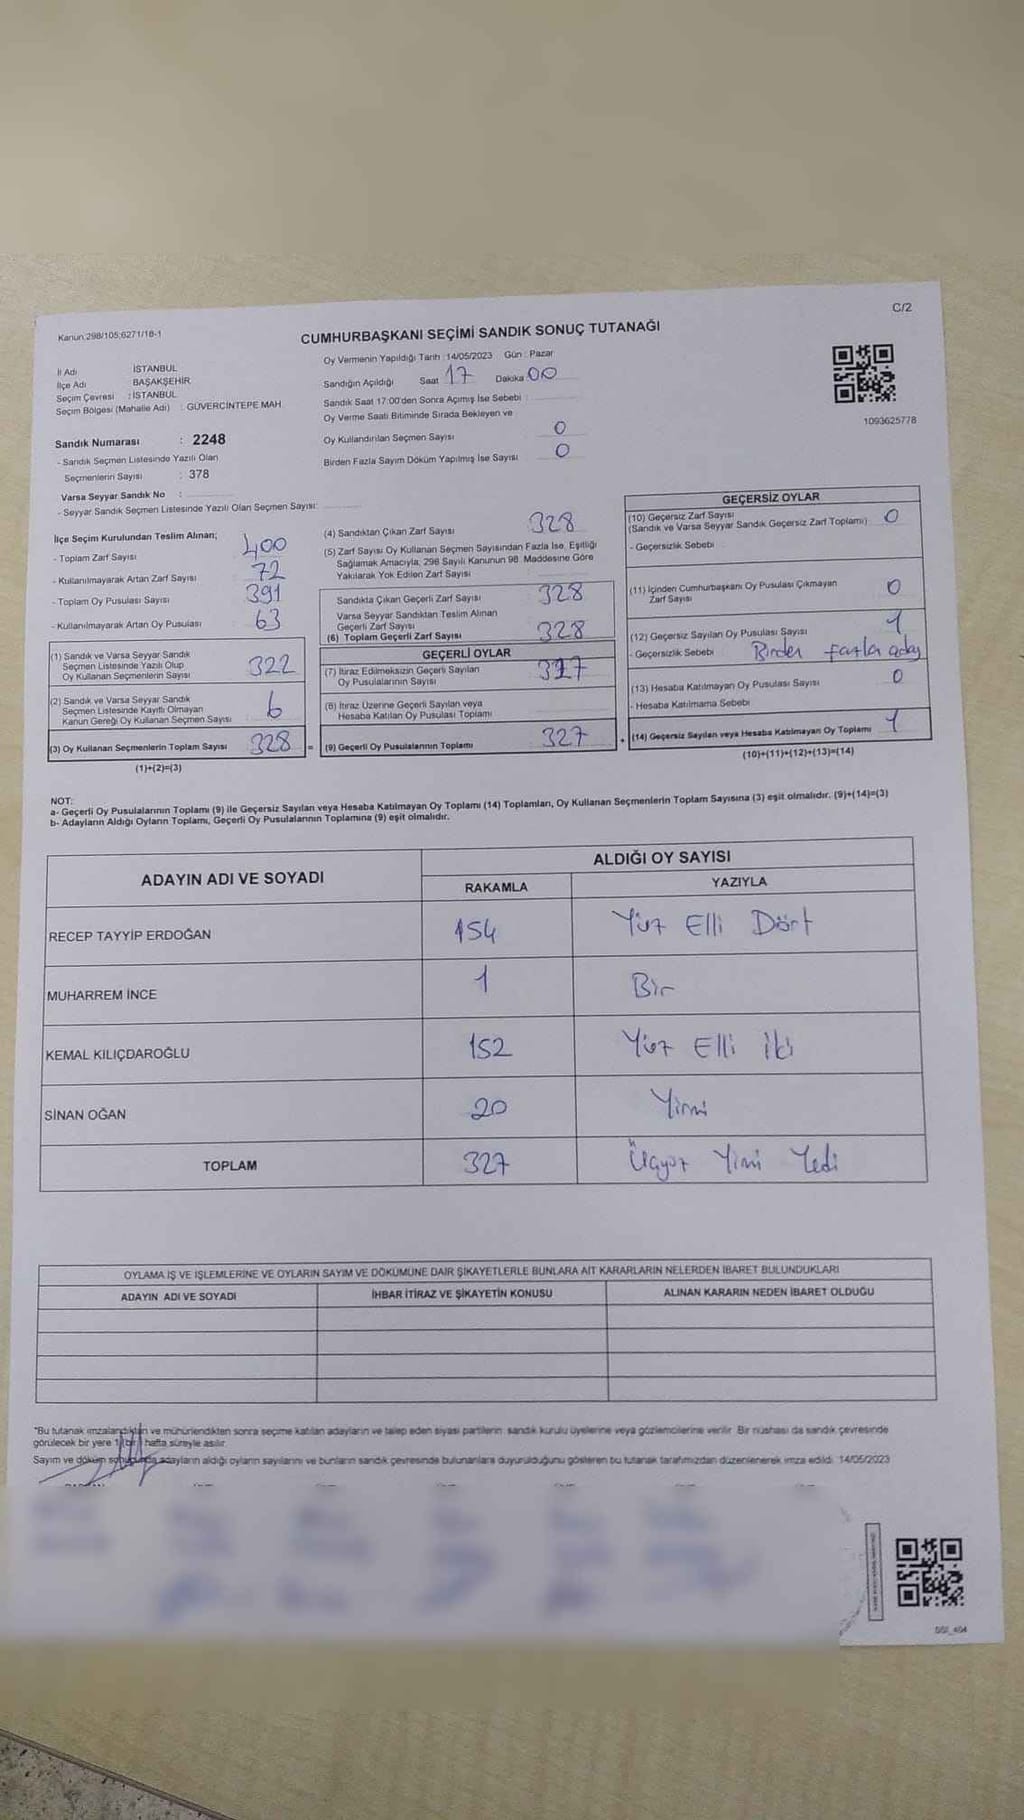 C/2
Kanun:298/105;6271/18-1
CUMHURBAŞKANI SEÇİMİ SANDIK SONUÇ TUTANAĞI
İl Adı İSTANBUL
İlçe Adı BAŞAKŞEHİR
Seçim Çevresi : İSTANBUL
Seçim Bölgesi (Mahalle Adı) : GÜVERCİNTEPE MAH.
Sandık Numarası : 2248
- Sandık Seçmen Listesinde Yazılı Olan
Seçmenlerin Sayısı : 378
Varsa Seyyar Sandık No :
- Seyyar Sandık Seçmen Listesinde Yazılı Olan Seçmen Sayısı:
Oy Vermenin Yapıldığı Tarih :14/05/2023 Gün : Pazar
Sandığın Açıldığı Saat 17 Dakika 00
Sandık Saat 17:00'den Sonra Açımış İse Sebebi :
Oy Verme Saati Bitiminde Sırada Bekleyen ve
Oy Kullandırılan Seçmen Sayısı 0
Birden Fazla Sayım Döküm Yapılmış İse Sayısı 0
1093625778
İlçe Seçim Kurulundan Teslim Alınan;
- Toplam Zarf Sayısı 400
- Kullanılmayarak Artan Zarf Sayısı 72
- Toplam Oy Pusulası Sayısı 391
- Kullanılmayarak Artan Oy Pusulası 63
(1) Sandık ve Varsa Seyyar Sandık
Seçmen Listesinde Yazılı Olup
Oy Kullanan Seçmenlerin Sayısı 322
(2) Sandık ve Varsa Seyyar Sandık
Seçmen Listesinde Kayıtlı Olmayan
Kanun Gereği Oy Kullanan Seçmen Sayısı 6
(3) Oy Kullanan Seçmenlerin Toplam Sayısı 328 =
(1)+(2)=(3)
(4) Sandıktan Çıkan Zarf Sayısı 328
(5) Zarf Sayısı Oy Kullanan Seçmen Sayısından Fazla İse, Eşitliği
Sağlamak Amacıyla, 298 Sayılı Kanunun 98. Maddesine Göre
Yakılarak Yok Edilen Zarf Sayısı
Sandıkta Çıkan Geçerli Zarf Sayısı 328
Varsa Seyyar Sandıktan Teslim Alınan
Geçerli Zarf Sayısı
(6) Toplam Geçerli Zarf Sayısı 328
GEÇERLİ OYLAR
(7) İtiraz Edilmeksizin Geçerli Sayılan
Oy Pusulalarının Sayısı 327
(8) İtiraz Üzerine Geçerli Sayılan veya
Hesaba Katılan Oy Pusulası Toplamı
(9) Geçerli Oy Pusulalarının Toplamı 327 +
GEÇERSİZ OYLAR
(10) Geçersiz Zarf Sayısı
(Sandık ve Varsa Seyyar Sandık Geçersiz Zarf Toplamı) 0
- Geçersizlik Sebebi
(11) İçinden Cumhurbaşkanı Oy Pusulası Çıkmayan
Zarf Sayısı 0
(12) Geçersiz Sayılan Oy Pusulası Sayısı 1
- Geçersizlik Sebebi Birden fazla aday
(13) Hesaba Katılmayan Oy Pusulası Sayısı 0
- Hesaba Katılmama Sebebi
(14) Geçersiz Sayılan veya Hesaba Katılmayan Oy Toplamı 1
(10)+(11)+(12)+(13)=(14)
NOT:
a- Geçerli Oy Pusulalarının Toplamı (9) ile Geçersiz Sayılan veya Hesaba Katılmayan Oy Toplamı (14) Toplamları, Oy Kullanan Seçmenlerin Toplam Sayısına (3) eşit olmalıdır. (9)+(14)=(3)
b- Adayların Aldığı Oyların Toplamı, Geçerli Oy Pusulalarının Toplamına (9) eşit olmalıdır.
ADAYIN ADI VE SOYADI ALDIĞI OY SAYISI
RAKAMLA YAZIYLA
RECEP TAYYİP ERDOĞAN 154 Yüz Elli Dört
MUHARREM İNCE 1 Bir
KEMAL KILIÇDAROĞLU 152 Yüz Elli İki
SİNAN OĞAN 20 Yirmi
TOPLAM 327 Üçyüz Yirmi Yedi
OYLAMA İŞ VE İŞLEMLERİNE VE OYLARIN SAYIM VE DÖKÜMÜNE DAİR ŞİKAYETLERLE BUNLARA AİT KARARLARIN NELERDEN İBARET BULUNDUKLARI
ADAYIN ADI VE SOYADI İHBAR İTİRAZ VE ŞİKAYETİN KONUSU ALINAN KARARIN NEDEN İBARET OLDUĞU
"Bu tutanak imzalandıktan ve mühürlendikten sonra seçime katılan adayların ve talep eden siyasi partilerin sandık kurulu üyelerine veya gözlemcilerine verilir. Bir nüshası da sandık çevresinde
görülecek bir yere 1 (bir) hafta süreyle asılır.
Sayım ve döküm sonucunda adayların aldığı oyların sayılarını ve bunların sandık çevresinde bulunanlara duyurulduğunu gösteren bu tutanak tarafımızdan düzenlenerek imza edildi. 14/05/2023